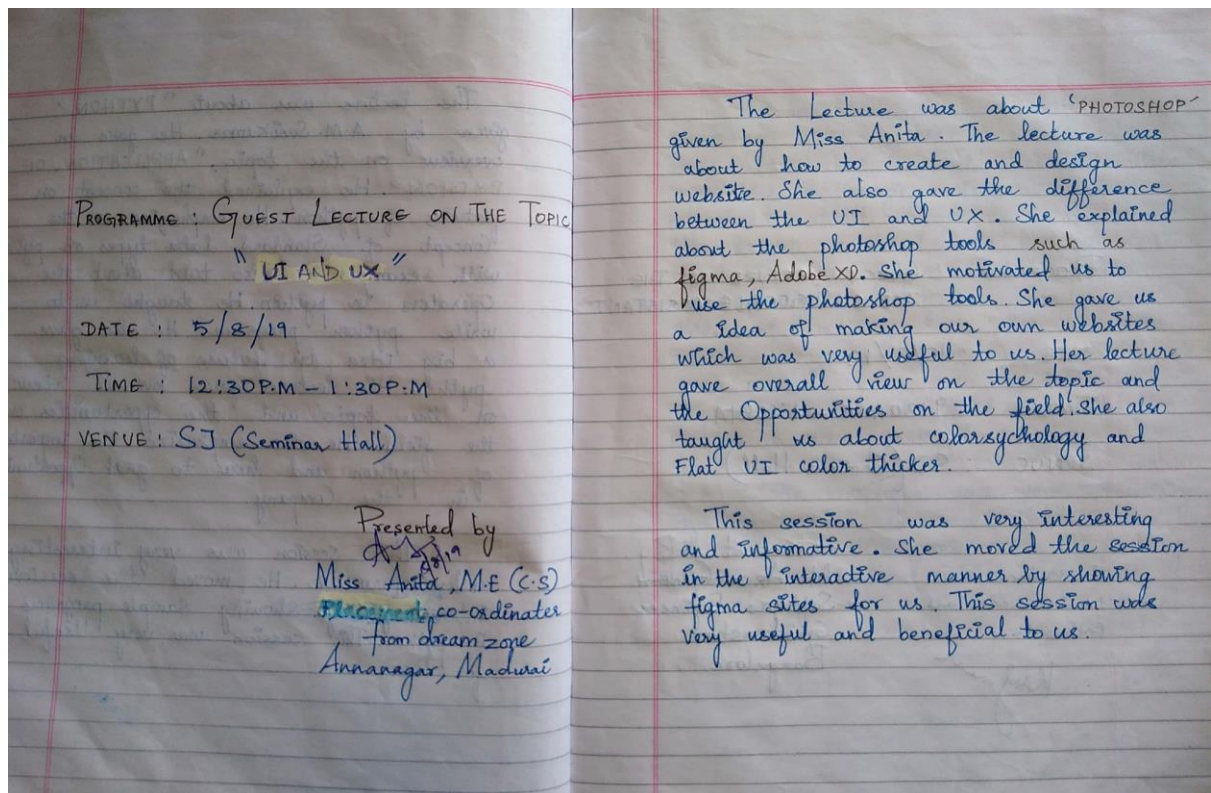 PROGRAMME : GUEST LECTURE ON THE TOPIC
" UI AND UX "
DATE : 5/8/19
TIME : 12:30P.M – 1:30P.M
VENUE : SJ (Seminar Hall)
Presented by
Miss Anita, M.E (C.S)
Placement co-ordinater
from dream zone
Annanagar, Madurai
The Lecture was about 'PHOTOSHOP'
given by Miss Anita. The lecture was
about how to create and design
website. She also gave the difference
between the UI and UX. She explained
about the photoshop tools such as
figma, Adobe XD. She motivated us to
use the photoshop tools. She gave us
a idea of making our own websites
which was very useful to us. Her lecture
gave overall view on the topic and
the Opportunities on the field. She also
taught us about colorsychology and
Flat UI color thicker.
This session was very interesting
and informative. She moved the session
in the interactive manner by showing
figma sites for us. This session was
very useful and beneficial to us.